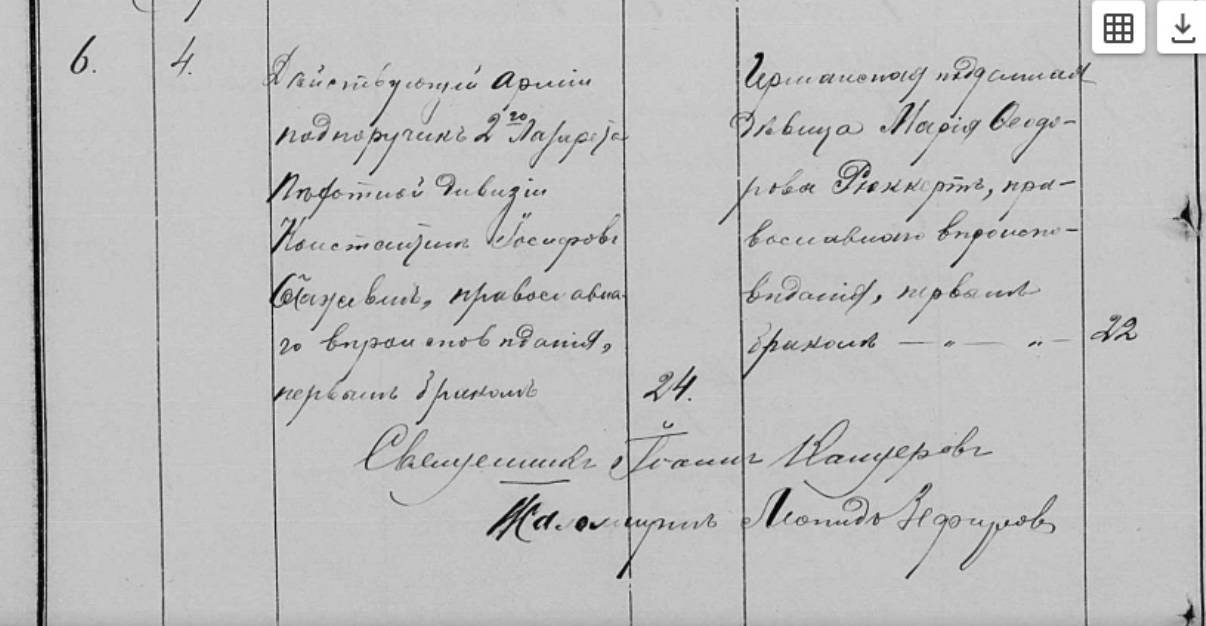 6.
4.
Дѣйствующей арміи
подпоручикъ 2го Лазарета
Пѣхотной дивизіи
Константинъ Іосифовъ
православна-
го вѣроисповѣданія,
первымъ бракомъ
24.
Германская подданная
дѣвица Марія Ѳеодо-
рова Рюккертъ, пра-
вославнаго вѣроиспо-
вѣданія, первымъ
бракомъ — „ — „ —
22
Священникъ Іоаннъ
Псаломщикъ Леонидъ Зефировъ